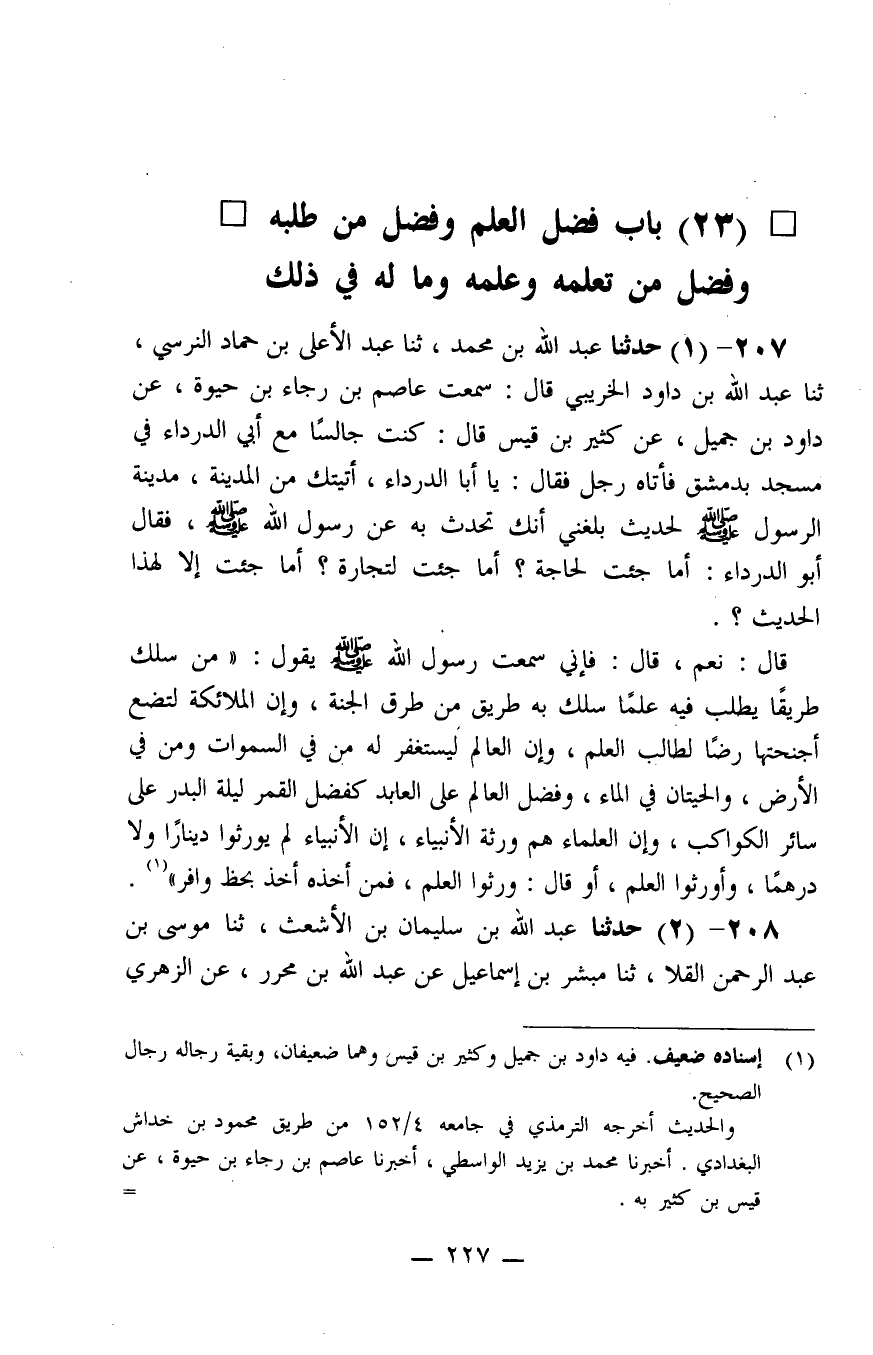 □ (٢٣) باب فضل العلم وفضل من طلبه □
وفضل من تعلمه وعلمه وما له في ذلك
٢٠٧- (١) حدثنا عبد الله بن محمد ، ثنا عبد الأعلى بن حماد النرسي ،
ثنا عبد الله بن داود الخريبي قال : سمعت عاصم بن رجاء بن حيوة ، عن
داود بن جميل ، عن كثير بن قيس قال : كنت جالسًا مع أبي الدرداء في
مسجد بدمشق فأتاه رجل فقال : يا أبا الدرداء ، أتيتك من المدينة ، مدينة
الرسول ﷺ لحديث بلغني أنك تحدث به عن رسول الله ﷺ ، فقال
أبو الدرداء : أما جئت لحاجة ؟ أما جئت لتجارة ؟ أما جئت إلا لهذا
الحديث ؟ .
قال : نعم ، قال : فإني سمعت رسول الله ﷺ يقول : « من سلك
طريقًا يطلب فيه علمًا سلك به طريق من طرق الجنة ، وإن الملائكة لتضع
أجنحتها رضًا لطالب العلم ، وإن العالم ليستغفر له من في السموات ومن في
الأرض ، والحيتان في الماء ، وفضل العالم على العابد كفضل القمر ليلة البدر على
سائر الكواكب ، وإن العلماء هم ورثة الأنبياء ، إن الأنبياء لم يورثوا دينارًا ولا
درهمًا ، وأورثوا العلم ، أو قال : ورثوا العلم ، فمن أخذه أخذ بحظ وافر»(١) .
٢٠٨- (٢) حدثنا عبد الله بن سليمان بن الأشعث ، ثنا موسى بن
عبد الرحمن القلا ، ثنا مبشر بن إسماعيل عن عبد الله بن محرر ، عن الزهري
(١) إسناده ضعيف. فيه داود بن جميل وكثير بن قيس وهما ضعيفان، وبقية رجاله رجال
الصحيح.
والحديث أخرجه الترمذي في جامعه ١٥٢/٤ من طريق محمود بن خداش
البغدادي . أخبرنا محمد بن يزيد الواسطي ، أخبرنا عاصم بن رجاء بن حيوة ، عن
قيس بن كثير به . =
— ٢٢٧ —